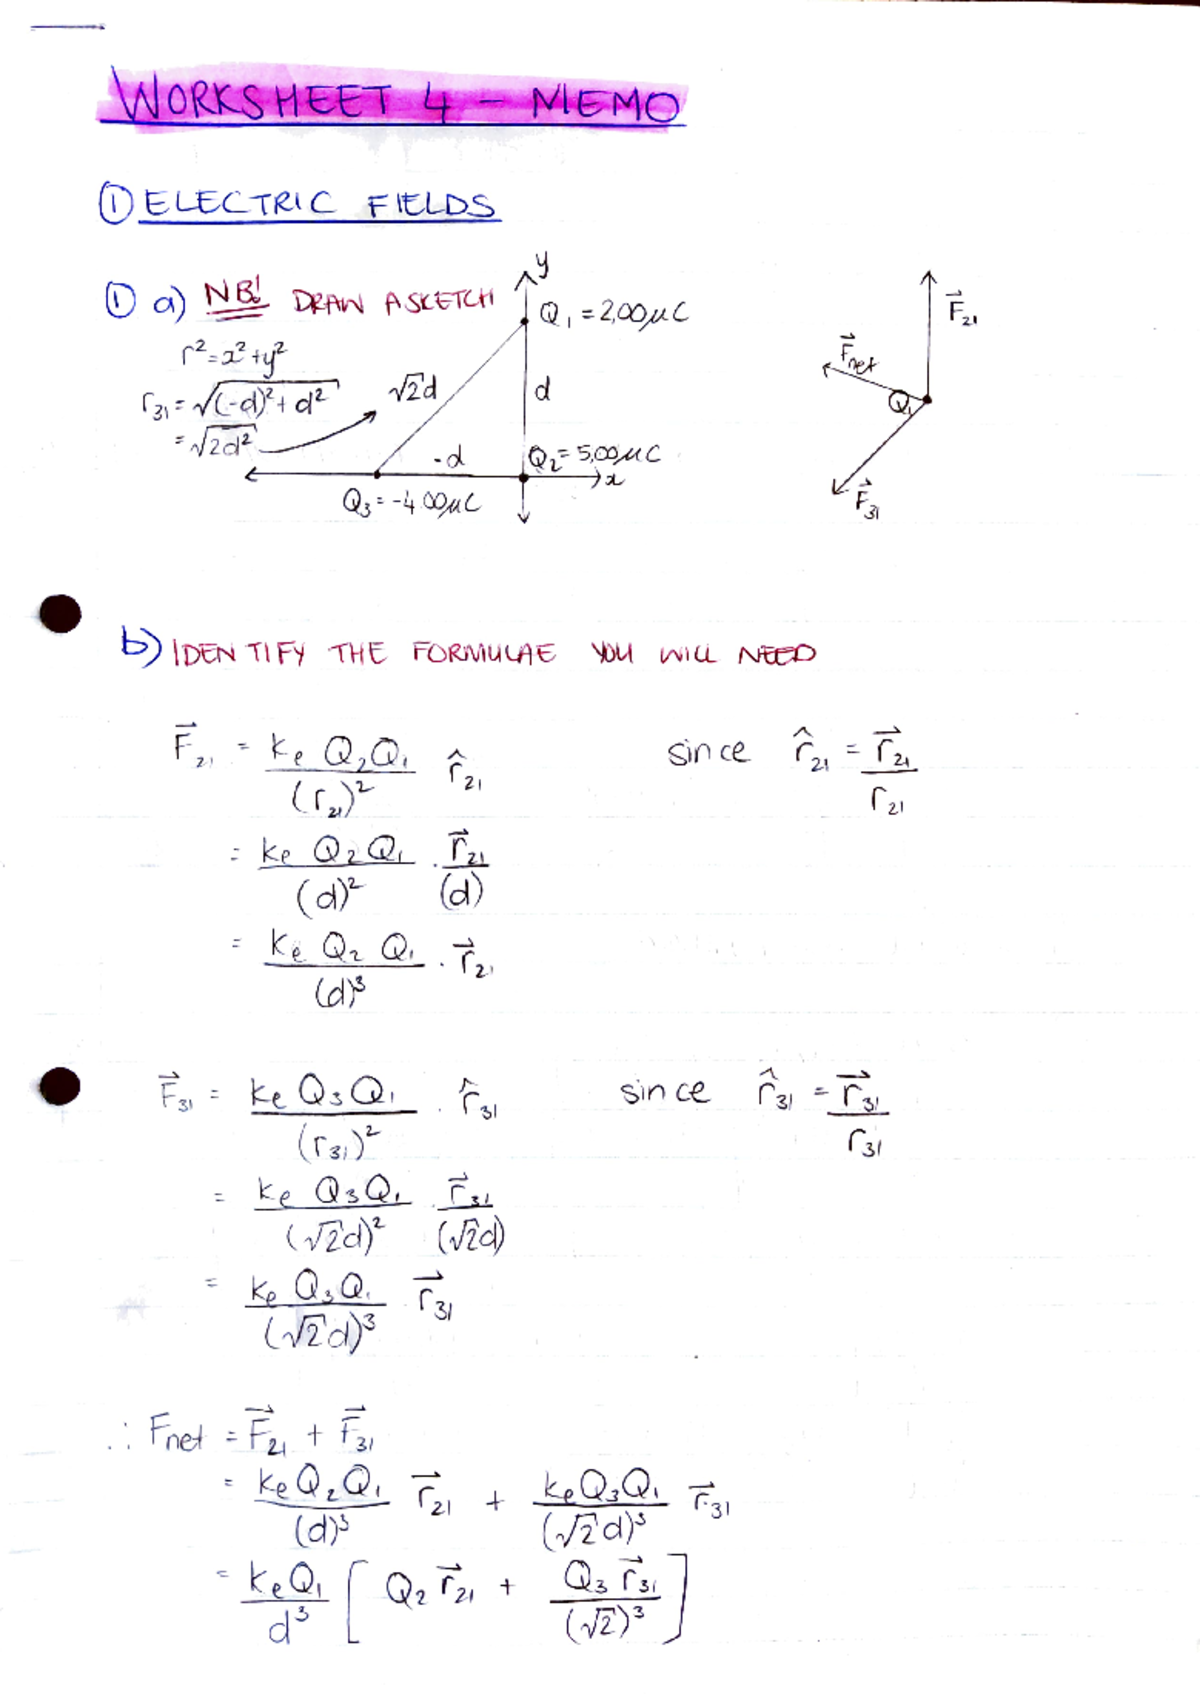 WORKSHEET 4 - MEMO
① ELECTRIC FIELDS
① a) NB! DRAW A SKETCH
r² = x² + y²
r₃₁ = √((-d)² + d²)
= √2d²
√2d
y
Q₁ = 2,00μC
d
-d
Q₂ = 5,00μC
x
Q₃ = -4.00μC
F⃗₂₁
F⃗net
Q₁
F⃗₃₁
b) IDENTIFY THE FORMULAE YOU WILL NEED
F⃗₂₁ = ke Q₂Q₁ / (r₂₁)² r̂₂₁ since r̂₂₁ = r⃗₂₁ / r₂₁
= ke Q₂Q₁ / (d)² . r⃗₂₁ / (d)
= ke Q₂ Q₁ / (d)³ . r⃗₂₁
F⃗₃₁ = ke Q₃Q₁ / (r₃₁)² . r̂₃₁ since r̂₃₁ = r⃗₃₁ / r₃₁
= ke Q₃Q₁ / (√2d)² . r⃗₃₁ / (√2d)
= ke Q₃Q₁ / (√2d)³ . r⃗₃₁
∴ Fnet = F⃗₂₁ + F⃗₃₁
= keQ₂Q₁ / (d)³ r⃗₂₁ + keQ₃Q₁ / (√2d)³ r⃗₃₁
= keQ₁ / d³ [ Q₂ r⃗₂₁ + Q₃ r⃗₃₁ / (√2)³ ]